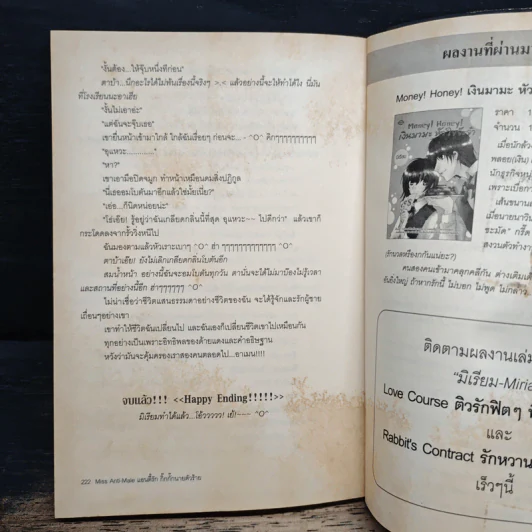 "งั้นต้อง...ให้จุ๊บหนึ่งทีก่อน"
ตาบ้า...นึกอะไรได้ไม่พ้นเรื่องนี้จริงๆ >.< แล้วอย่างนี้จะให้ทำได้ไง นี่มัน
ที่โรงเรียนนะอาเฮีย
"งั้นไม่เอาอ่ะ"
"แต่ฉันจะจุ๊บเธอ"
เขายื่นหน้าเข้ามาใกล้ ใกล้ฉันเรื่อยๆ ก่อนจะ... ^O^ คิกๆๆๆๆๆๆๆๆๆ
"อุแหวะ............"
"หา?"
เขาเอามือปิดจมูก ทำหน้าเหมือนคนสิ่งปฏิกูล
"นี่เธออมโบตันมาอีกแล้วใช่มั้ยเนี่ย?"
"เอ่อ...ก็นิดหน่อยน่ะ"
"โธ่เอ๊ย! รู้อยู่ว่าฉันเกลียดกลิ่นนี้ที่สุด อุแหวะ~~ ไปดีกว่า" แล้วเขาก็
กระโดดลงจากรั้ววิ่งหนีไป
ฉันมองตามแล้วหัวเราะเบาๆ ^O^ ฮ่า ๆๆๆๆๆๆๆๆๆ ^O^
ตาบ้าเอ๊ย! ยังไม่เลิกเกลียดกลิ่นโบตันอีก
สมน้ำหน้า อย่างนี้ฉันจะอมโบตันทุกวัน ตานั่นจะได้ไม่มาป้องไม่รู้เวลา
และสถานที่อย่างนี้อีก ฮ่าๆๆๆๆๆๆ ^O^
ไม่น่าเชื่อว่าชีวิตแสนธรรมดาอย่างชีวิตของฉัน จะได้รู้จักและรักผู้ชาย
เถื่อนๆอย่างเขา
เขาทำให้ชีวิตฉันเปลี่ยนไป และฉันเองก็เปลี่ยนชีวิตเขาไปเหมือนกัน
ทุกอย่างเป็นเพราะอิทธิพลของด้ายแดงและคำอธิษฐาน
หวังว่ามันจะคุ้มครองเราสองคนตลอดไป...อาเมน!!!!
จบแล้ว!!! <<Happy Ending!!!!!>>
มิเรียมทำได้แล้ว...โอ้วววว! เย้!~~~ ^O^
222 Miss Anti-Male แอนตี้รัก กิ๊กกั๊กนายตัวร้าย
ผลงานที่ผ่านมา
Money! Honey! เงินมามะ หัว
Money! Honey!
เงินมามะ
ราคา
จำนวน
เมื่อนักล้ว
พลอย(เงิน)
นักธุรกิจหนุ่
เพราะเบื่อกา
เส้นขนาน
เมื่อนายนาวิน
ชะมัด" กรี๊ด
สงวนตัวทำงา
(รักนวลหรืองกกันแน่ยะ?)
คนสองคนเข้ามาคลุกคลีกัน ต่างเติมเต็
อันยิ่งใหญ่ ถ้าหากรักนี้ ไม่บอก ไม่พูด ไม่กล่าว
ติดตามผลงานเล่ม
"มิเรียม-Miria
Love Course ติวรักฟิตๆ
และ
Rabbit's Contract รักหวาน
เร็วๆนี้